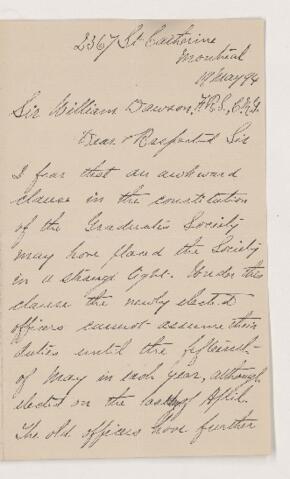 2367 St Catherine
Montreal
19 May 94
Sir William Dawson, F.R.S., C.M.G.
Dear & Respected Sir
I fear that an awkward
clause in the constitution
of the Graduates Society
may have placed the Society
in a strange light. Under this
clause the newly elected
officers cannot assume their
duties until the fifteenth
of May in each year, although
elected on the last of April.
The old officers have further